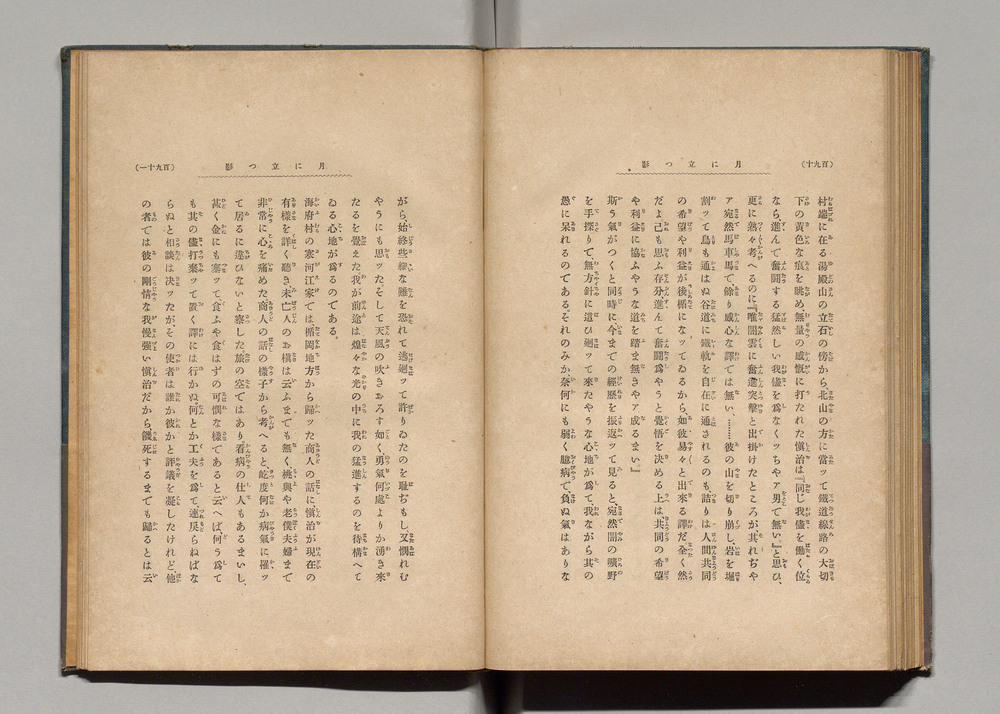 (百九十)
月に立つ影
村端に在る湯殿山の立石の傍から、北山の方に當ッて鐵道線路の大切
下の黄色な痕を眺め無量の感慨に打たれた愼治は『同じ我儘を働く位
なら、進んで奮鬪する猛然しい我儘を爲なくッちやア男で無い』と思ひ、
更に熟々考へるのに『唯闇雲に奮進突擊と出掛けたところが、其れぢや
ア宛然馬車馬で、餘り感心な譯では無い、……彼の山を切り崩し、岩を堀
割ッて鳥も通はぬ谷道に鐵軌を自在に通されるのも、詰りは人間共同
の希望や利益が後楯になッてゐるから如彼易々と出來る譯だ全く然
だよ己も思ふ存分進んで奮鬪爲やうと覺悟を決める上は共同の希望
や利益に協ふやうな道を踏ま無きやア成るまい』
斯う氣がつくと同時に今までの經歷を振返ッて見ると、宛然闇の曠野
を手探りで、無方針に這ひ廻ッて來たやうな心地が爲て、我ながら其の
愚に呆れるのである、それのみか奈何にも弱く臆病で、負ぬ氣はありな
(百九十一)
月に立つ影
がら、始終些細な難を恐れて逃廻ッて許りゐたのを耻ぢもし、又憫れむ
やうにも思ッたそして天風の吹きおろす如く勇氣何處よりか湧き來
たるを覺えた我が前途は煌々な光の中に我の猛進するのを待構へて
ゐる心地が爲るのである。
海府村の寒河江家では楯岡地方から歸ッた商人の話に愼治が現在の
有樣を詳く聽き、未亡人のお槇は云ふまでも無く、桃與や老僕夫婦まで
非常に心を痛めた商人の話の樣子から考へると屹度何か病氣に罹ッ
て居るに違ひないと察した旅の空ではあり看病の仕人もあるまいし、
甚く金にも塞ッて食ふや食はずの可憫な樣であると云へば何う爲て
も其の儘打棄ッて置く譯には行かぬ、何とか工夫を爲て、連戾らねばな
らぬと相談は決ッたが、その使者は誰か彼かと評議を凝したけれど、他
の者では彼の剛情な我慢強い愼治だから、饑死するまでも歸るとは云